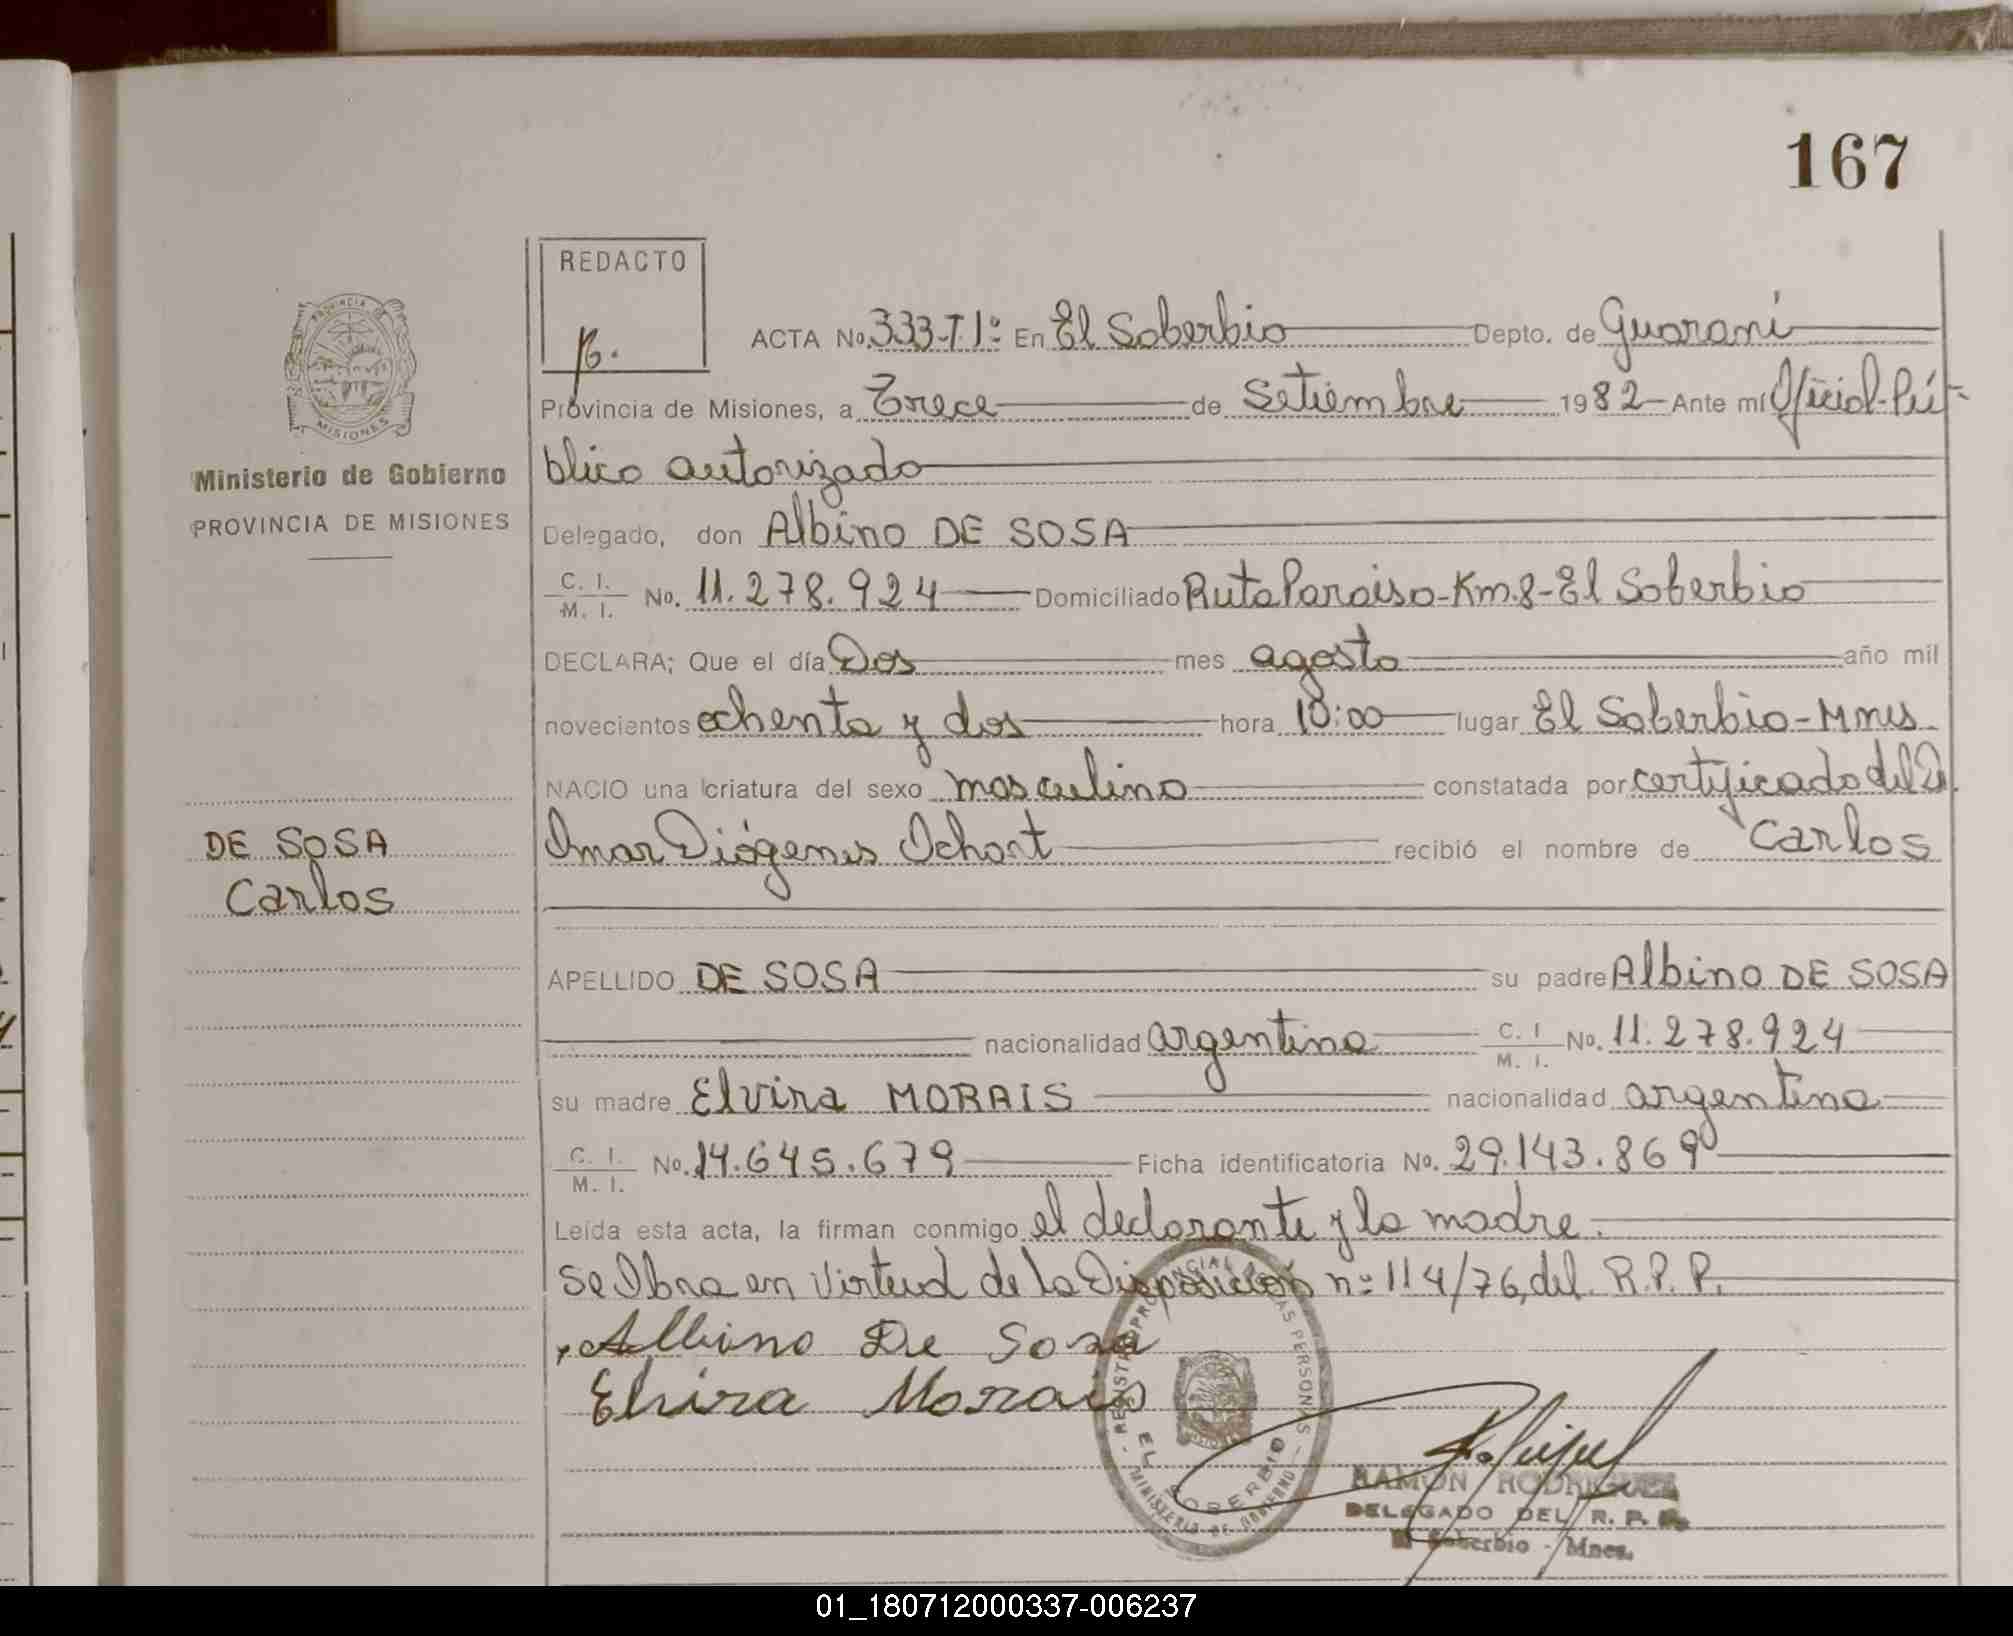 167
REDACTO
PROVINCIA
MISIONES
ACTA No. 333-T.1º En El Soberbio Depto. de Guaraní
Provincia de Misiones, a Trece de Setiembre 1982 Ante mí Oficial-Pú-
Ministerio de Gobierno
PROVINCIA DE MISIONES
blico autorizado
Delegado, don Albino DE SOSA
C. I. M. I. No. 11.278.924 Domiciliado Ruta Paraiso-Km.8-El Soberbio
DECLARA; Que el día Dos mes agosto año mil
novecientos ochenta y dos hora 10:00 lugar El Soberbio-Mnes
NACIO una criatura del sexo masculino constatada por certificado del Dr.
Omar Diógenes Ochart recibió el nombre de Carlos
DE SOSA
Carlos
APELLIDO DE SOSA su padre Albino DE SOSA
nacionalidad argentina C. I M. I. No. 11.278.924
su madre Elvira MORAIS nacionalidad argentina
C. I. M. I. No. 14.645.679 Ficha identificatoria No. 29.143.869
Leída esta acta, la firman conmigo el declarante y la madre.
Se Obra en virtud de la Disposición nº 114/76, del R.P.P.
Albino De Sosa
Elvira Morais
EL SOBERBIO
MINISTERIO DE GOBIERNO
RAMON RODRIGUEZ
DELEGADO DEL R. P. P.
El Soberbio - Mnes.
01_180712000337-006237